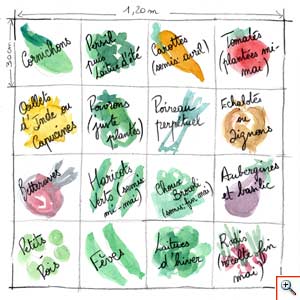 1,20m
30 cm
Cornichons
Persil
puis
Laitue d'été
Carottes
(semis avril)
Tomates
(plantées mi-
mai)
Œillets
d'Inde ou
Capucines
Poivrons
(juste
plantés)
Poireau
perpétuel
Echalotes
ou
Oignons
Betteraves
Haricots
Verts (semis
mi-mai)
Choux
Brocoli
(semis fin mai)
Aubergines
et basilic
Petits
Pois
Fèves
Laitues
d'hiver
Radis
(récolte fin
mai)